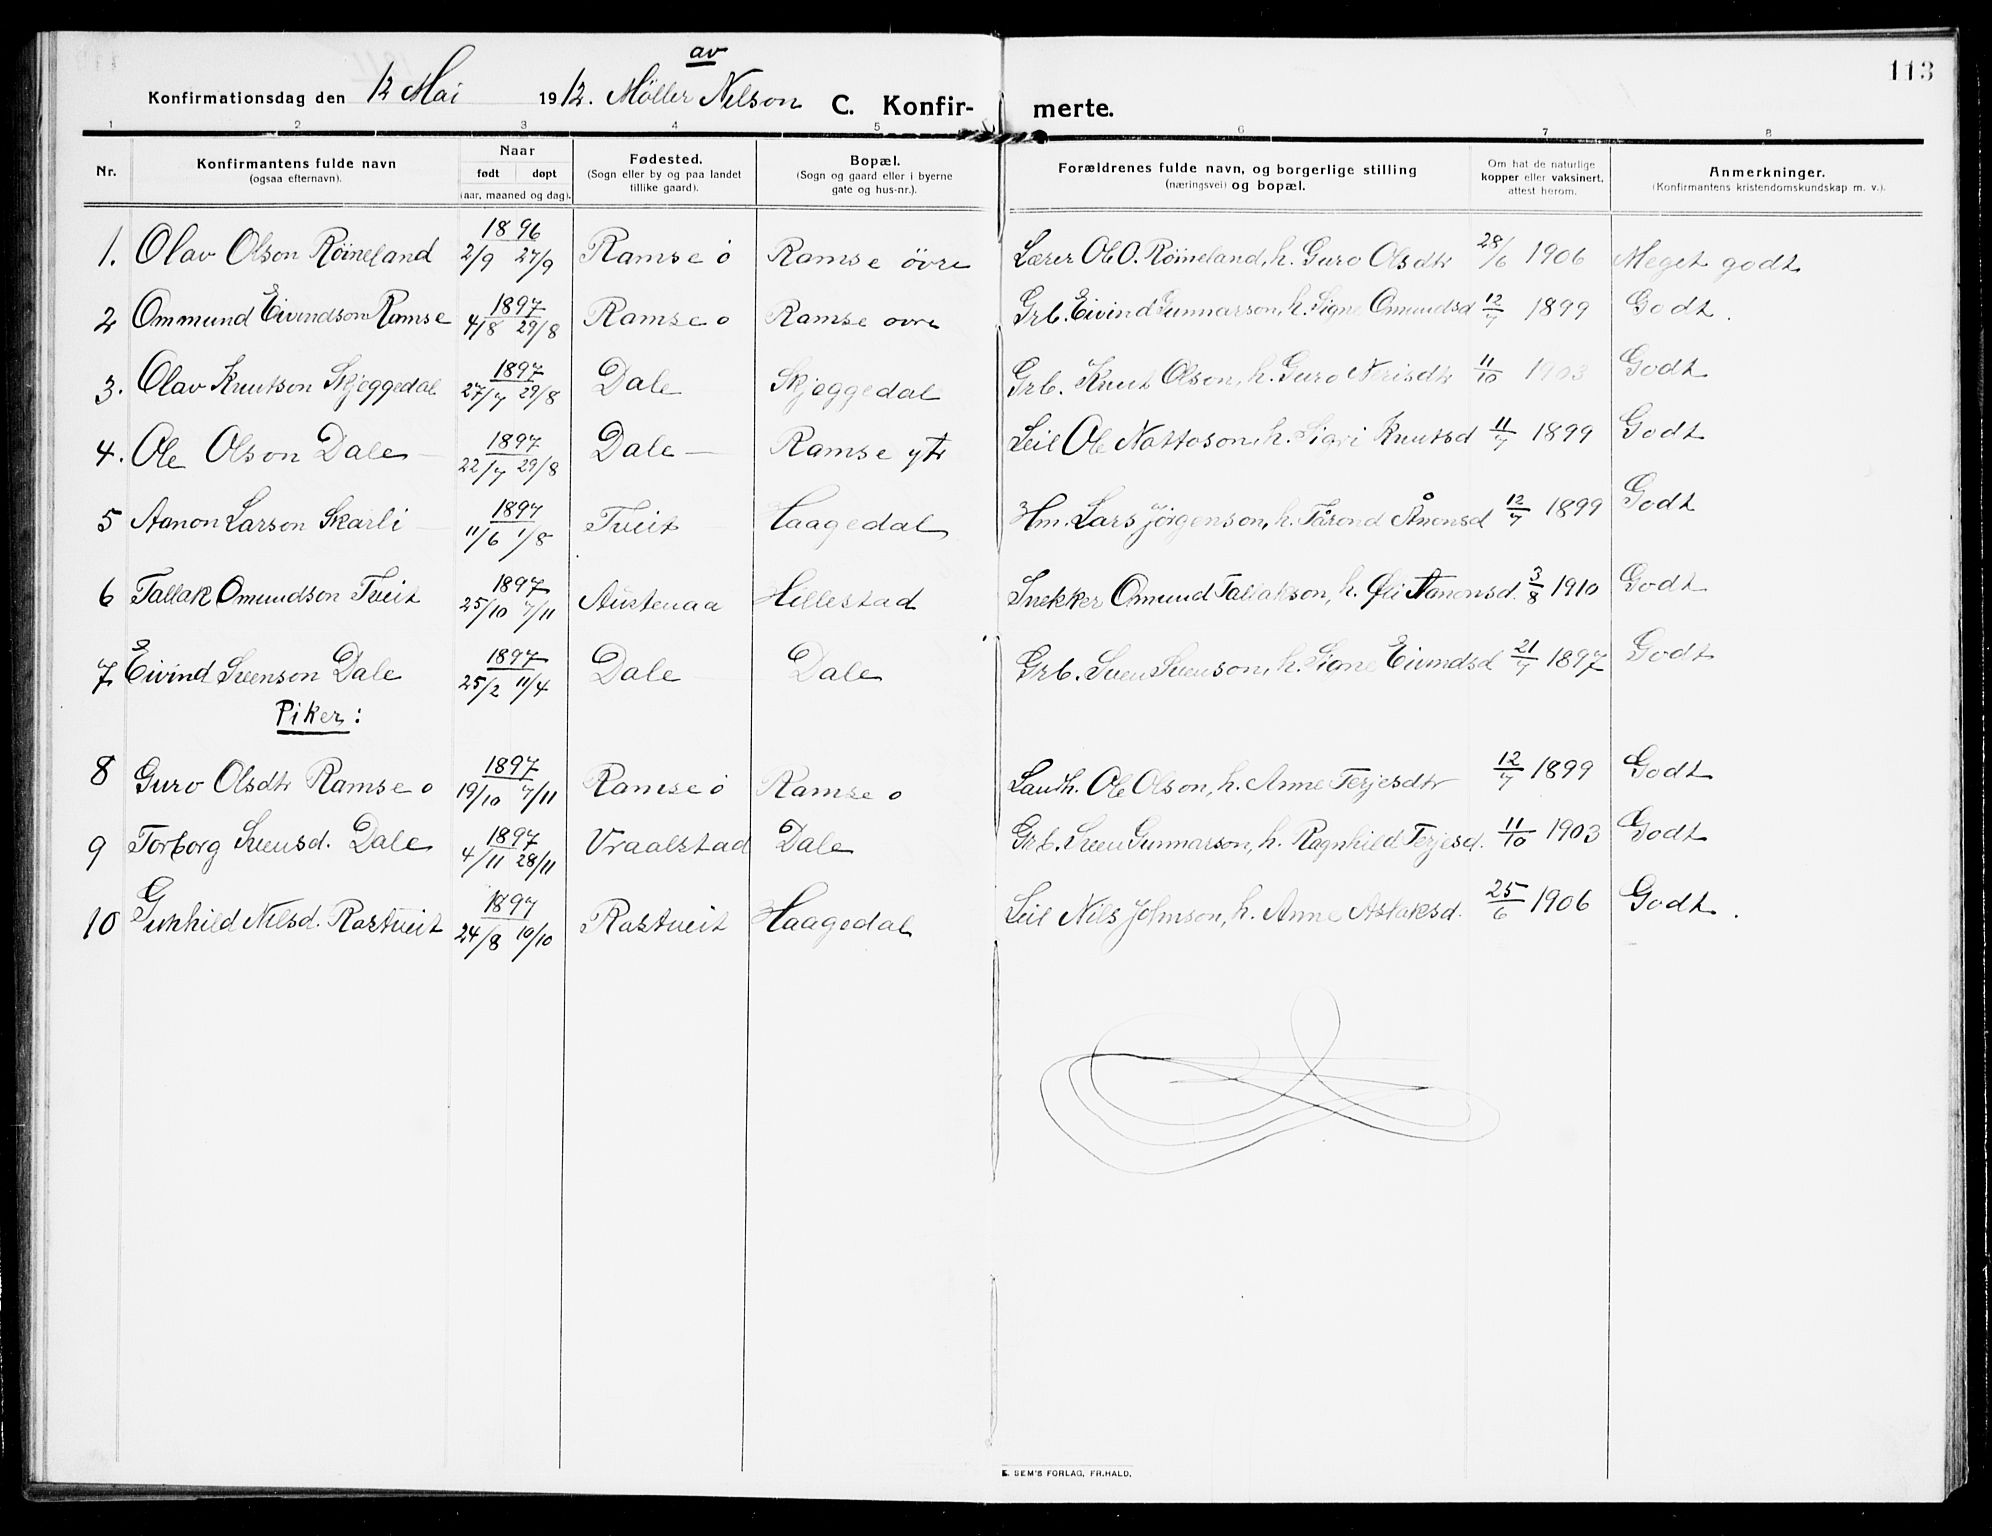 113
av
Konfirmationsdag den 12 Mai 1912. Møller Nilson C. Konfir- merte.
1 2 3 4 5 6 7 8
Nr. Konfirmantens fulde navn (ogsaa efternavn). Naar født døpt (aar, maaned og dag). Fødested. (Sogn eller by og paa landet tillike gaard). Bopæl. (Sogn og gaard eller i byerne gate og hus-nr.). Forældrenes fulde navn, og borgerlige stilling (næringsvei) og bopæl. Om hat de naturlige kopper eller vaksinert, attest herom. Anmerkninger. (Konfirmantens kristendomskundskap m. v.).
1. Olav Olson Röineland 1896 2/9 27/9 Ramse ö Ramse övre Lærer Ole O. Röineland, h. Guro Olsdtr 28/6 1906 Meget godt
2 Ommund Eivindson Ramse 1897 4/8 29/8 Ramse o Ramse ovre Grb. Eivind Gunnarson, h. Signe Omundsd 12/7 1899 Godt.
3. Olav Knutson Skjeggedal 1897 27/7 29/8 Dale Skjeggedal Grb. Knut Olson, h. Guro Nerisdtr 11/10 1903 Godt
4. Ole Olson Dale 1897 22/7 29/8 Dale Ramse ytr Leil Ole Nottoson, h. Sigri Knutsd 11/7 1899 Godt
5 Aanon Larson Skarli 1897 11/6 1/8 Tveit Haagedal Hm. Lars Jörgenson, h. Tårond Ånonsd 12/7 1899 Godt
6 Tallak Omundson Tveit 1897 25/10 7/11 Austenaa Hillestad Snekker Omund Tallakson, h. Øli Aanonsd. 3/8 1910 Godt
7 Eivind Svenson Dale 1897 25/2 11/4 Dale Dale Grb. Sven Svenson, h. Signe Eivindsd 21/7 1897 Godt
Piker:
8 Guro Olsdtr Ramse o 1897 19/10 7/11 Ramse ö Ramse o Lauh. Ole Olson, h. Anne Terjesdtr 12/7 1899 Godt
9 Torborg Svensd. Dale 1897 4/11 28/11 Vraalstad Dale Grb. Sven Gunnarson, h. Ragnhild Terjesd. 11/10 1903 Godt
10 Gunhild Nilsd. Rastveit 1897 24/8 10/10 Rastveit Haagedal Leil Nils Johnson, h. Anne Aslaksd. 25/6 1906 Godt.
E. SEM'S FORLAG, FR.HALD.